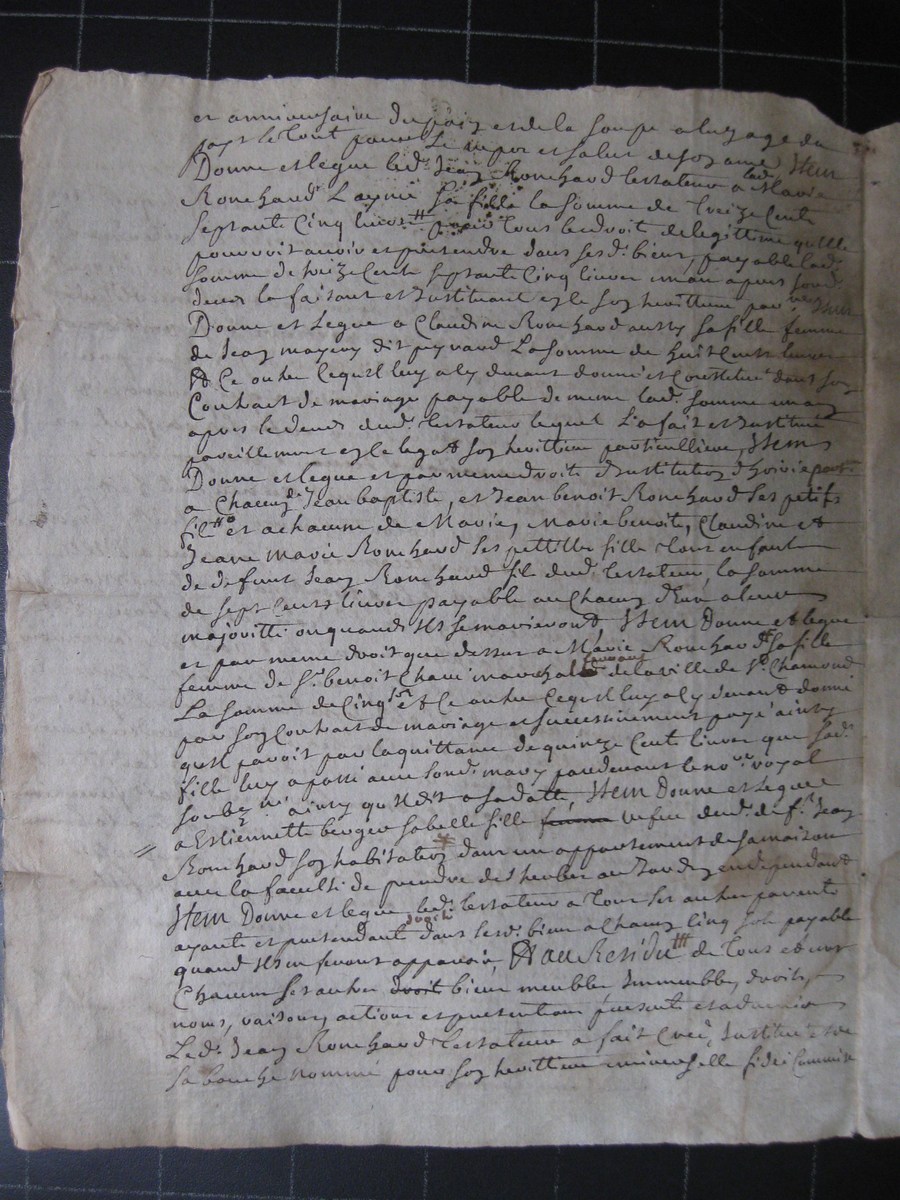 et anniversaire du pain et de la soupe a lusage du
pays le tout pour le repos et salut de son ame, Item
Donne et legue led. Jean Ronchard testateur a Marie
Ronchard Laynée sa fille la somme de treize cent
septante cinq livres pour tous le droit de legittime quelle
pourroit avoir et pretendre dans sesd. biens, payable lad.
somme de treize cent septante cinq livres un an apres sond.
deces la faisant et instituant son herittiere par Item
Donne et Legue a Claudine Ronchard aussy sa fille femme
de Jean mayery dit peyrard La somme de huit cents livres
Et ce outre ce quil luy a cy devant donné et constitué dans son
Contract de mariage payable de meme lad. somme un an
apres le deces dud. testateur lequel l'a fait et institué
pareillement son herittiere particulliere, Item
Donne et legue et par meme droit d'institution
a Chacun d. Jean baptiste, et Jean benoit Ronchard ses petits
fils et a chacune de Marie, Marie benoite, Claudine et
Jeane marie Ronchard ses pettittes fille tous enfant
de deffunt Jean Ronchard fils dud. testateur, la somme
de sept cents livres payable au Chacun d'eux a leur
majoritté ou quand ils se marieront Item Donne et legue
et par meme droit que dessus a Marie Ronchard sa fille
femme de sr. benoit Chavi marchal de la ville de st. Chamond
La somme de Cinq et ce outre ce quil luy a cy devant donné
par son Contract de mariage et successivement payé ainsy
quil paroit par la quittance de quinze cents livres que sad.
fille luy a passé avec sond. mary pardevant le nore. royal
soubzné. ainsy quil dit a sa datte, Item Donne et Legue
a Estiennette berger sa belle fille femme vefve dud. deft. Jean
Ronchard son habitation dans un appartement de sa maison
avec la faculté de prendre des herbes au Jardin en dependant
Item Donne et legue led. testateur a tous ses autres parents
ayants et pretendant droit dans sesd. biens a Chacun cinq sols payable
quand ils en feront apparoir, Et au Residu de tous et uns
Chacuns ses autres droit biens meubles immeubles, droits,
noms, raisons, actions et pretentions presents et advenir
Led. Jean Ronchard testateur a fait Creé, Institué et de
sa bouche nommé pour son herittiere universelle fidei Commise